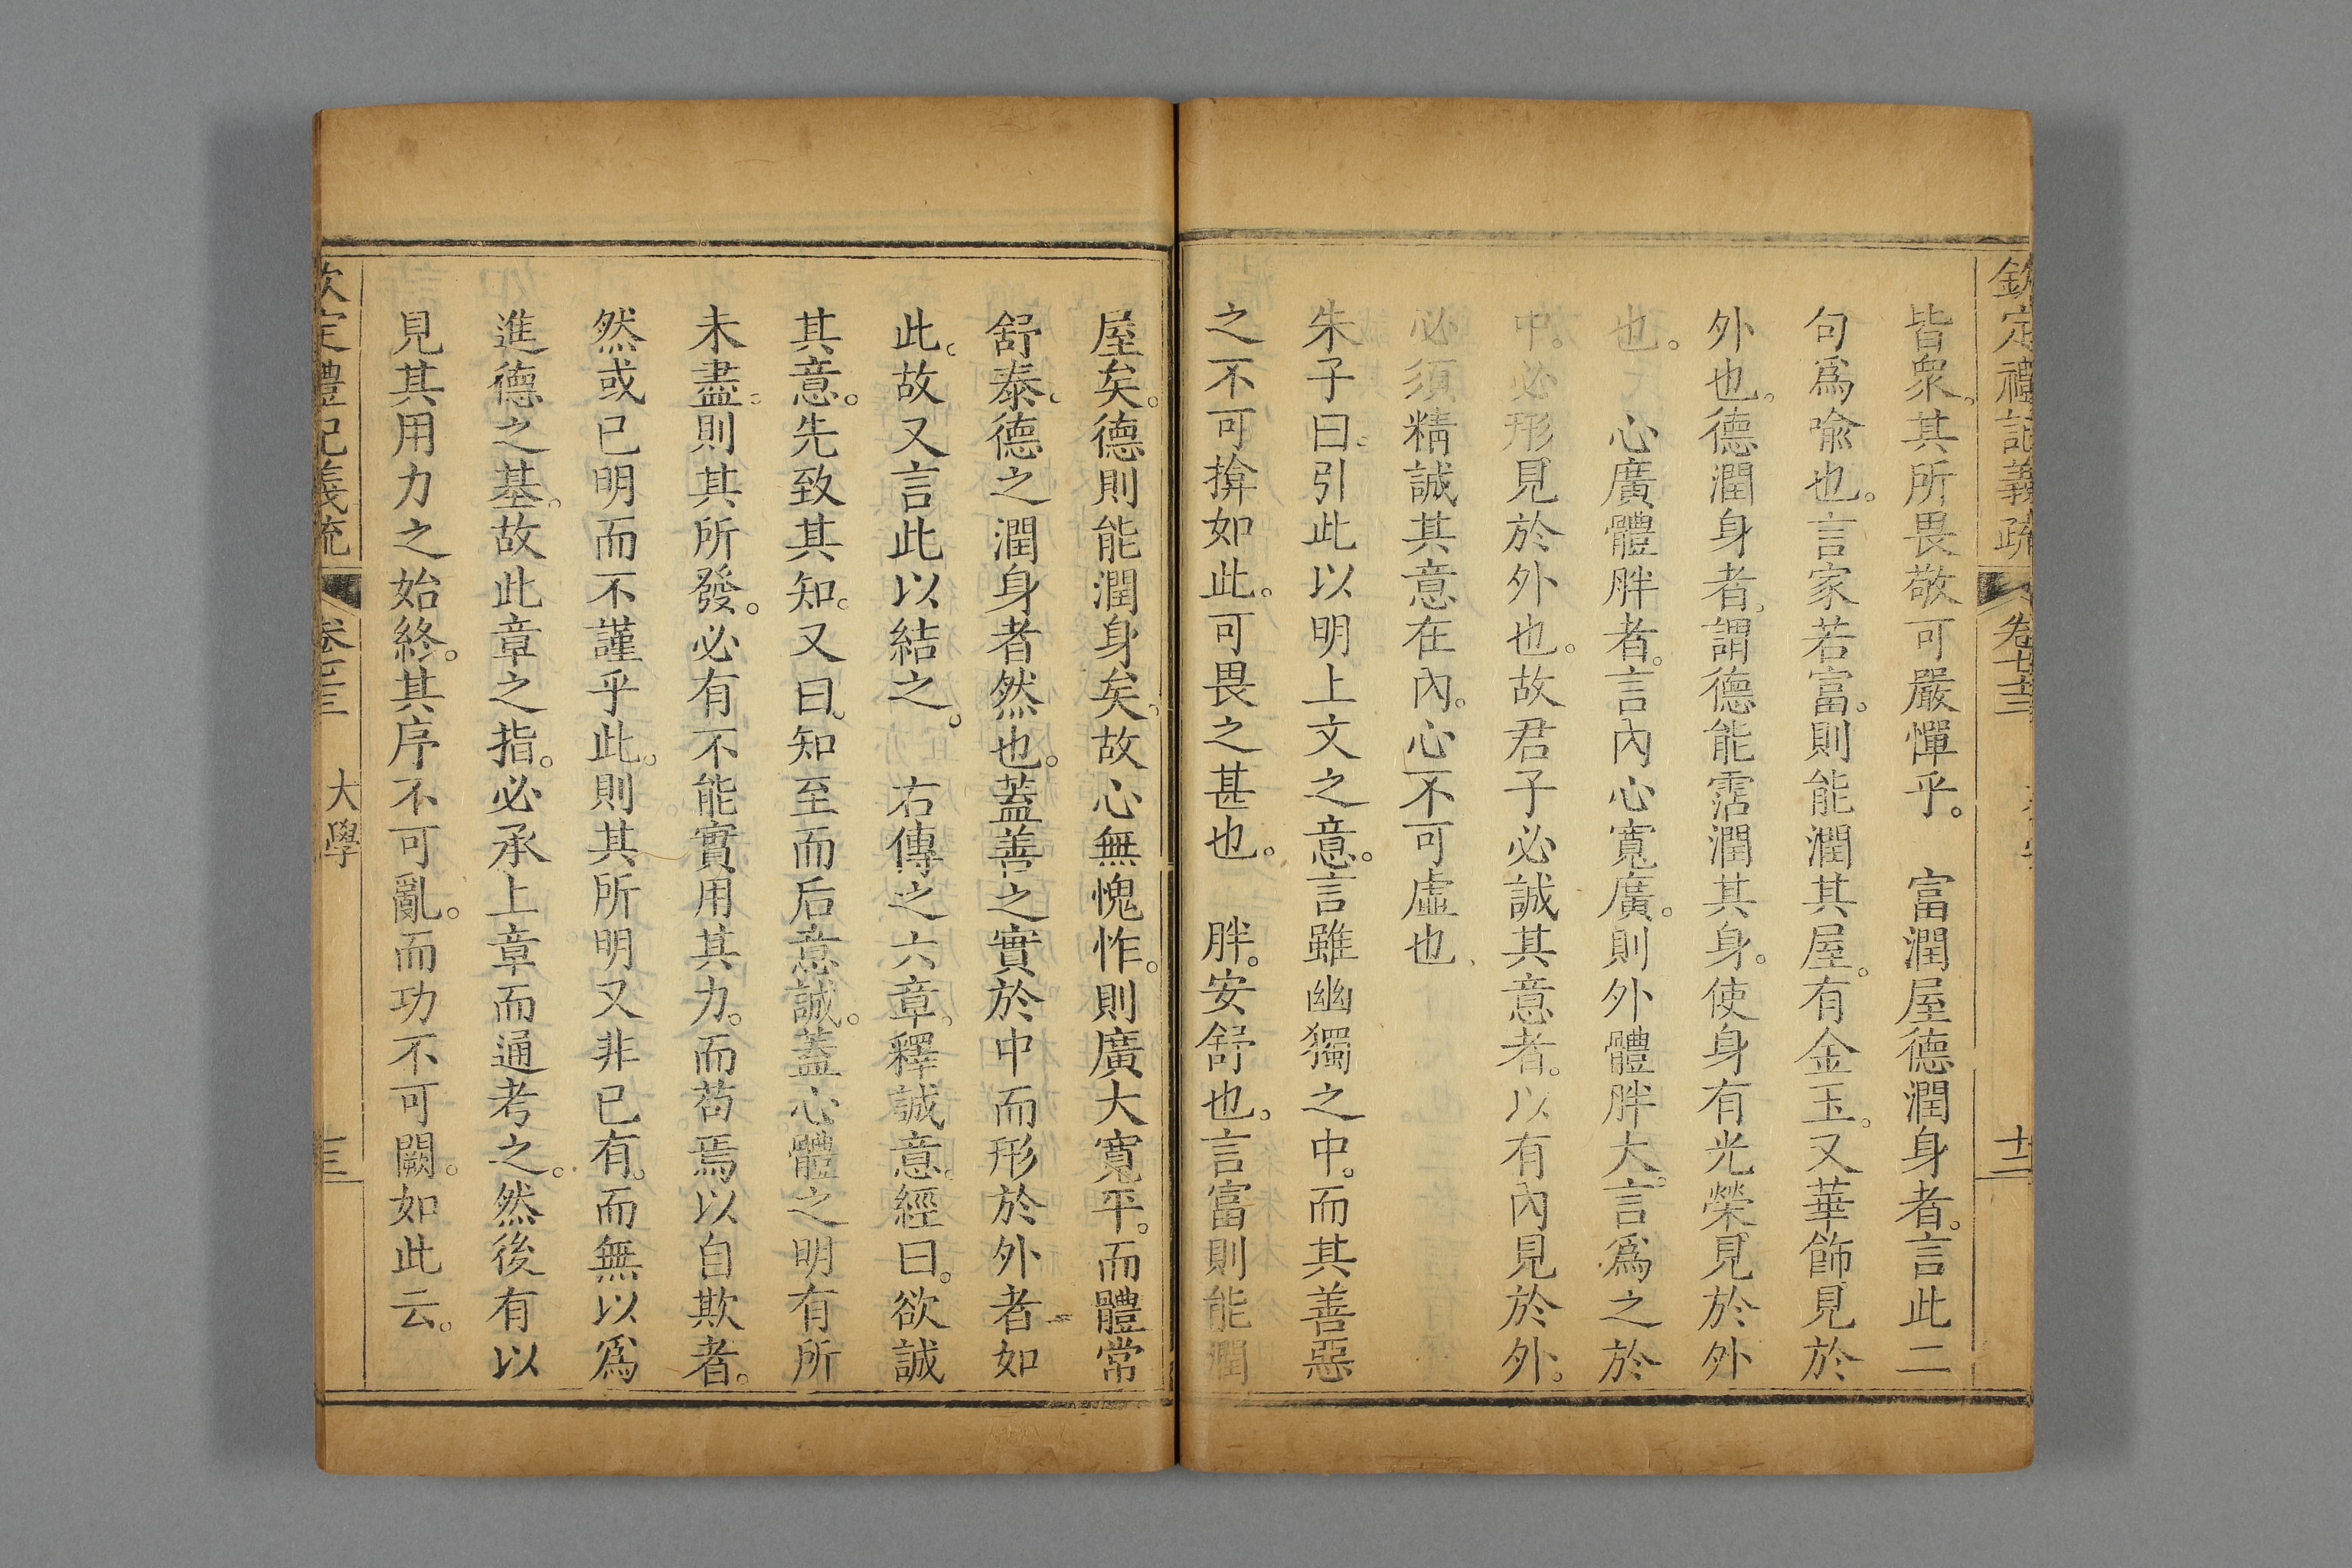 欽定禮記義疏 卷七十三 十二
皆衆。其所畏敬可嚴憚乎。 富潤屋德潤身者。言此二
句爲喩也。言家若富。則能潤其屋。有金玉。又華飾見於
外也。德潤身者。謂德能霑潤其身。使身有光榮見於外
也。 心廣體胖者。言內心寬廣。則外體胖大。言爲之於
中。必形見於外也。故君子必誠其意者。以有內見於外。
必須精誠其意在內。心不可虛也
朱子曰。引此以明上文之意。言雖幽獨之中。而其善惡
之不可揜如此。可畏之甚也。 胖。安舒也。言富則能潤
屋矣。德則能潤身矣。故心無愧怍。則廣大寬平。而體常
舒泰。德之潤身者然也。蓋善之實於中而形於外者如
此。故又言此以結之。 右傳之六章。釋誠意。經曰。欲誠
其意。先致其知。又曰。知至而后意誠。蓋心體之明有所
未盡。則其所發。必有不能實用其力。而苟焉以自欺者。
然或已明而不謹乎此。則其所明又非已有。而無以爲
進德之基。故此章之指。必承上章而通考之。然後有以
見其用力之始終。其序不可亂。而功不可闕。如此云。
欽定禮記義疏 大學